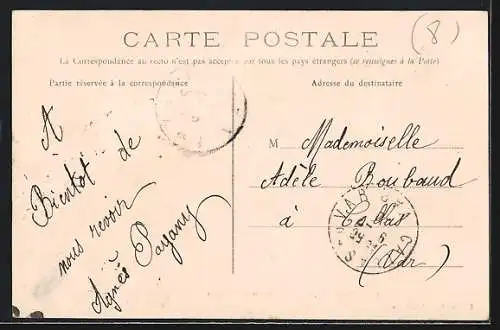 (8)
CARTE POSTALE
La Correspondance au recto n'est pas acceptée par tous les pays étrangers (se renseigner à la Poste)
Partie réservée à la correspondance
Adresse du destinataire
A
Bientôt de
nous revoir
Agnès
M Mademoiselle
Adèle Roubaud
à
(Var)
VAR